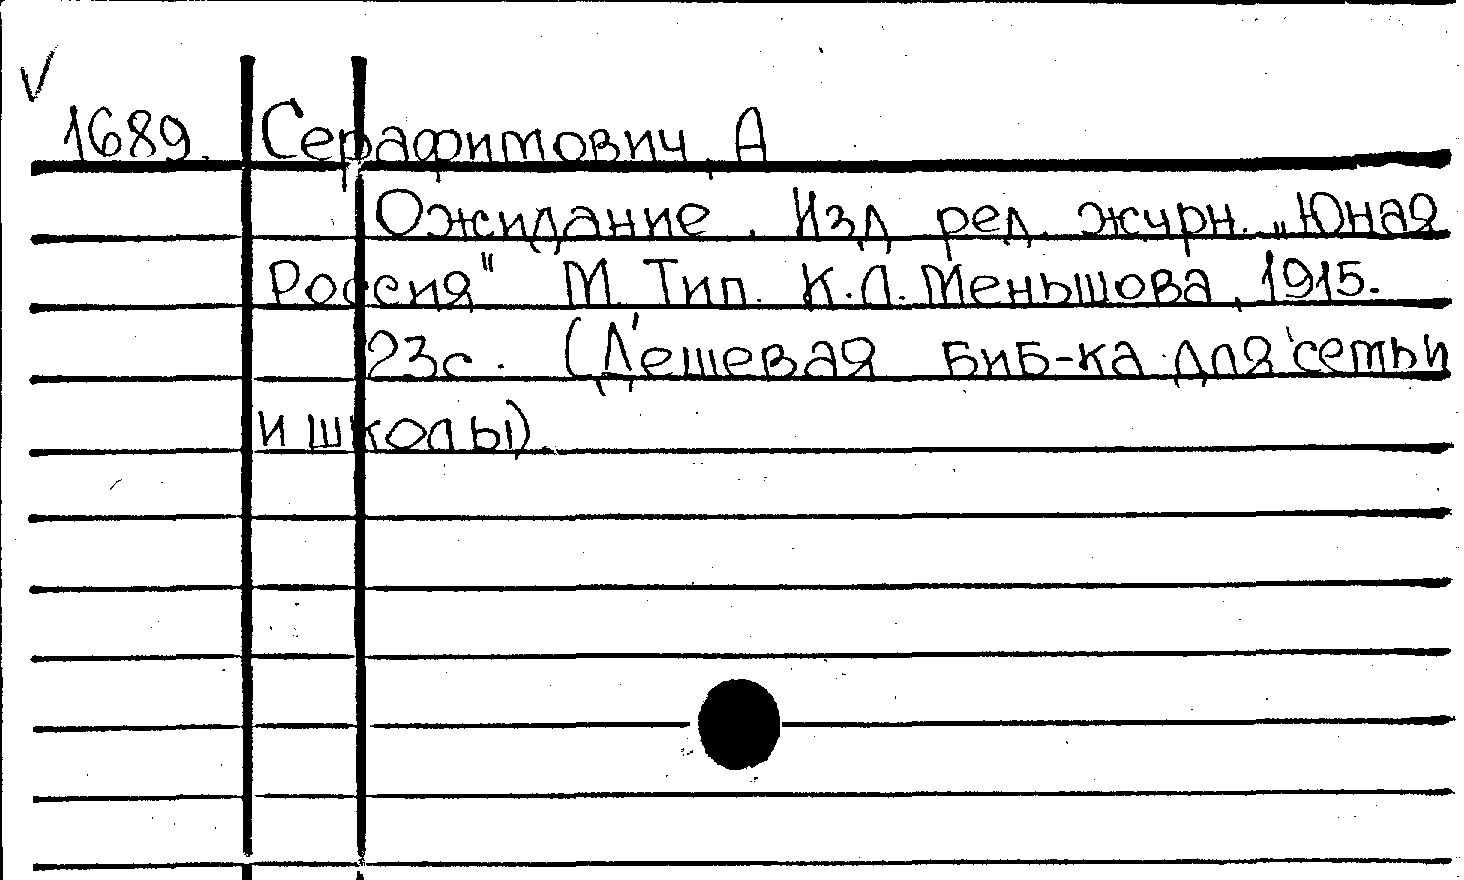 √
1689. Серафимович, А
Ожидание. Изд. ред. журн. „Юная
Россия" М. Тип. К.Л. Меньшова, 1915.
23с. (Дешевая биб-ка для семьи
и школы).